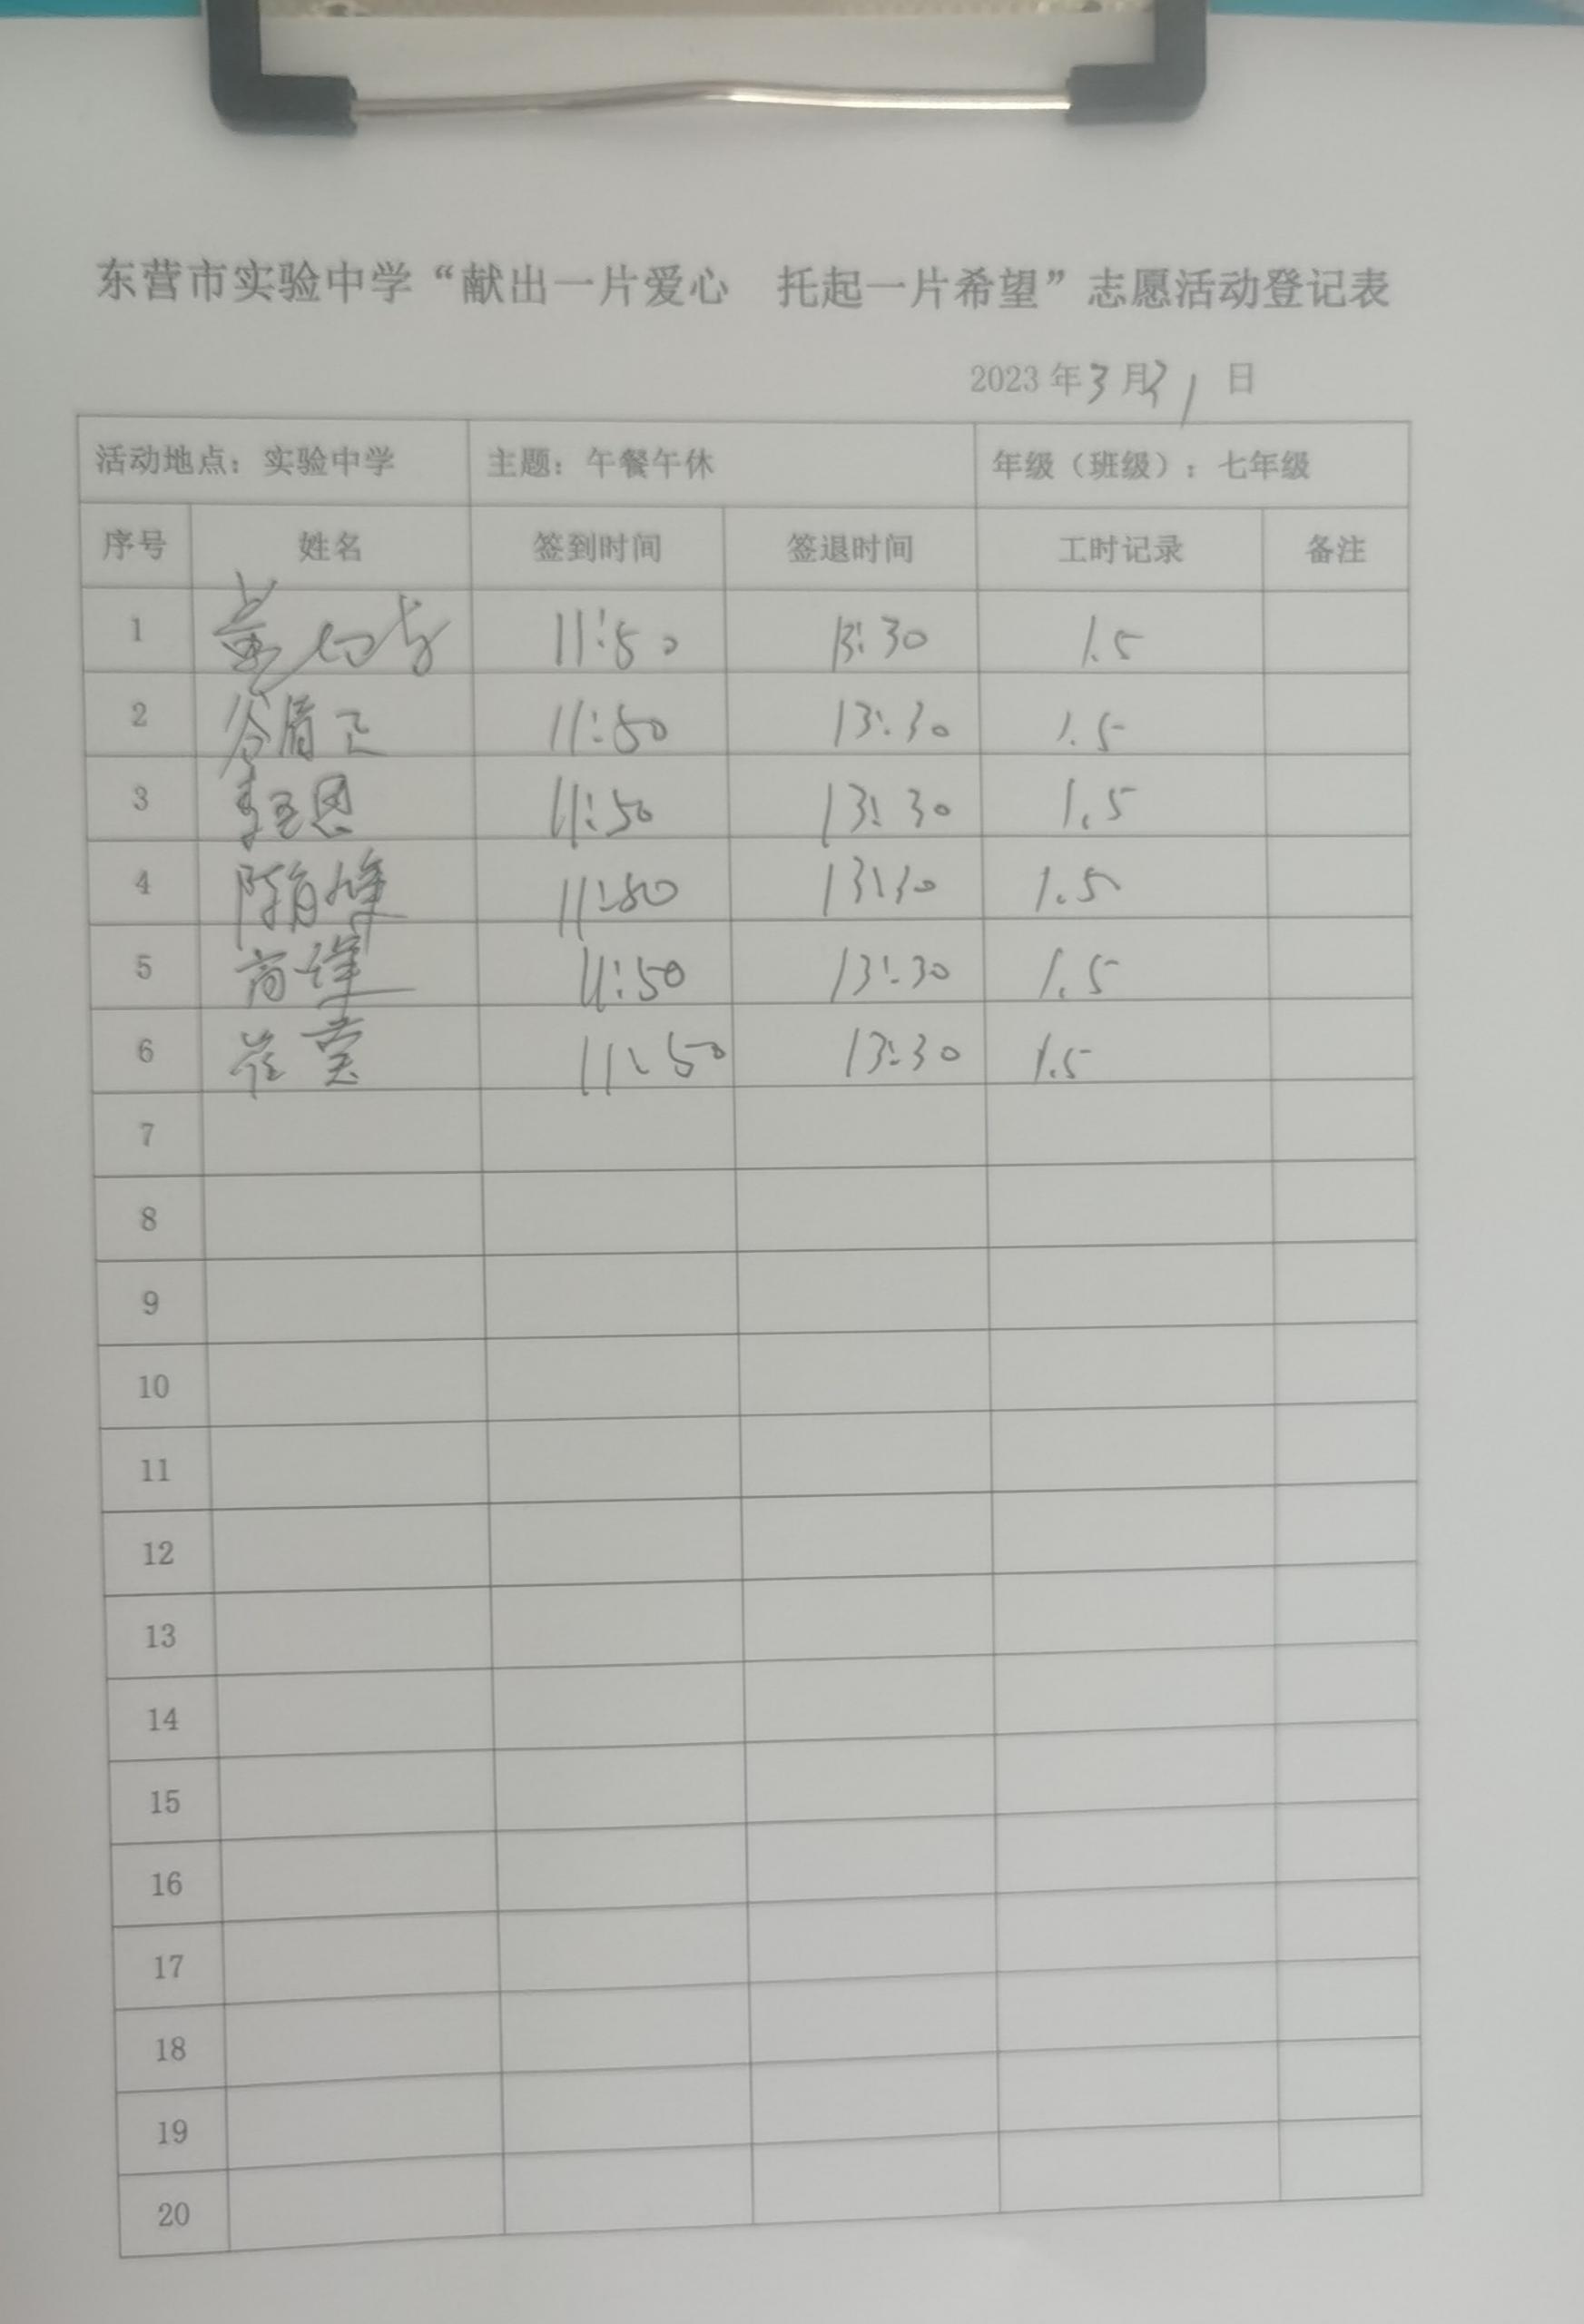 东营市实验中学“献出一片爱心 托起一片希望”志愿活动登记表
2023年3月31日
活动地点：实验中学 主题：午餐午休 年级（班级）：七年级
序号 姓名 签到时间 签退时间 工时记录 备注
1 11:50 13:30 1.5
2 11:50 13:30 1.5
3 11:50 13:30 1.5
4 11:50 13:30 1.5
5 高 11:50 13:30 1.5
6 崔 11:50 13:30 1.5
7
8
9
10
11
12
13
14
15
16
17
18
19
20